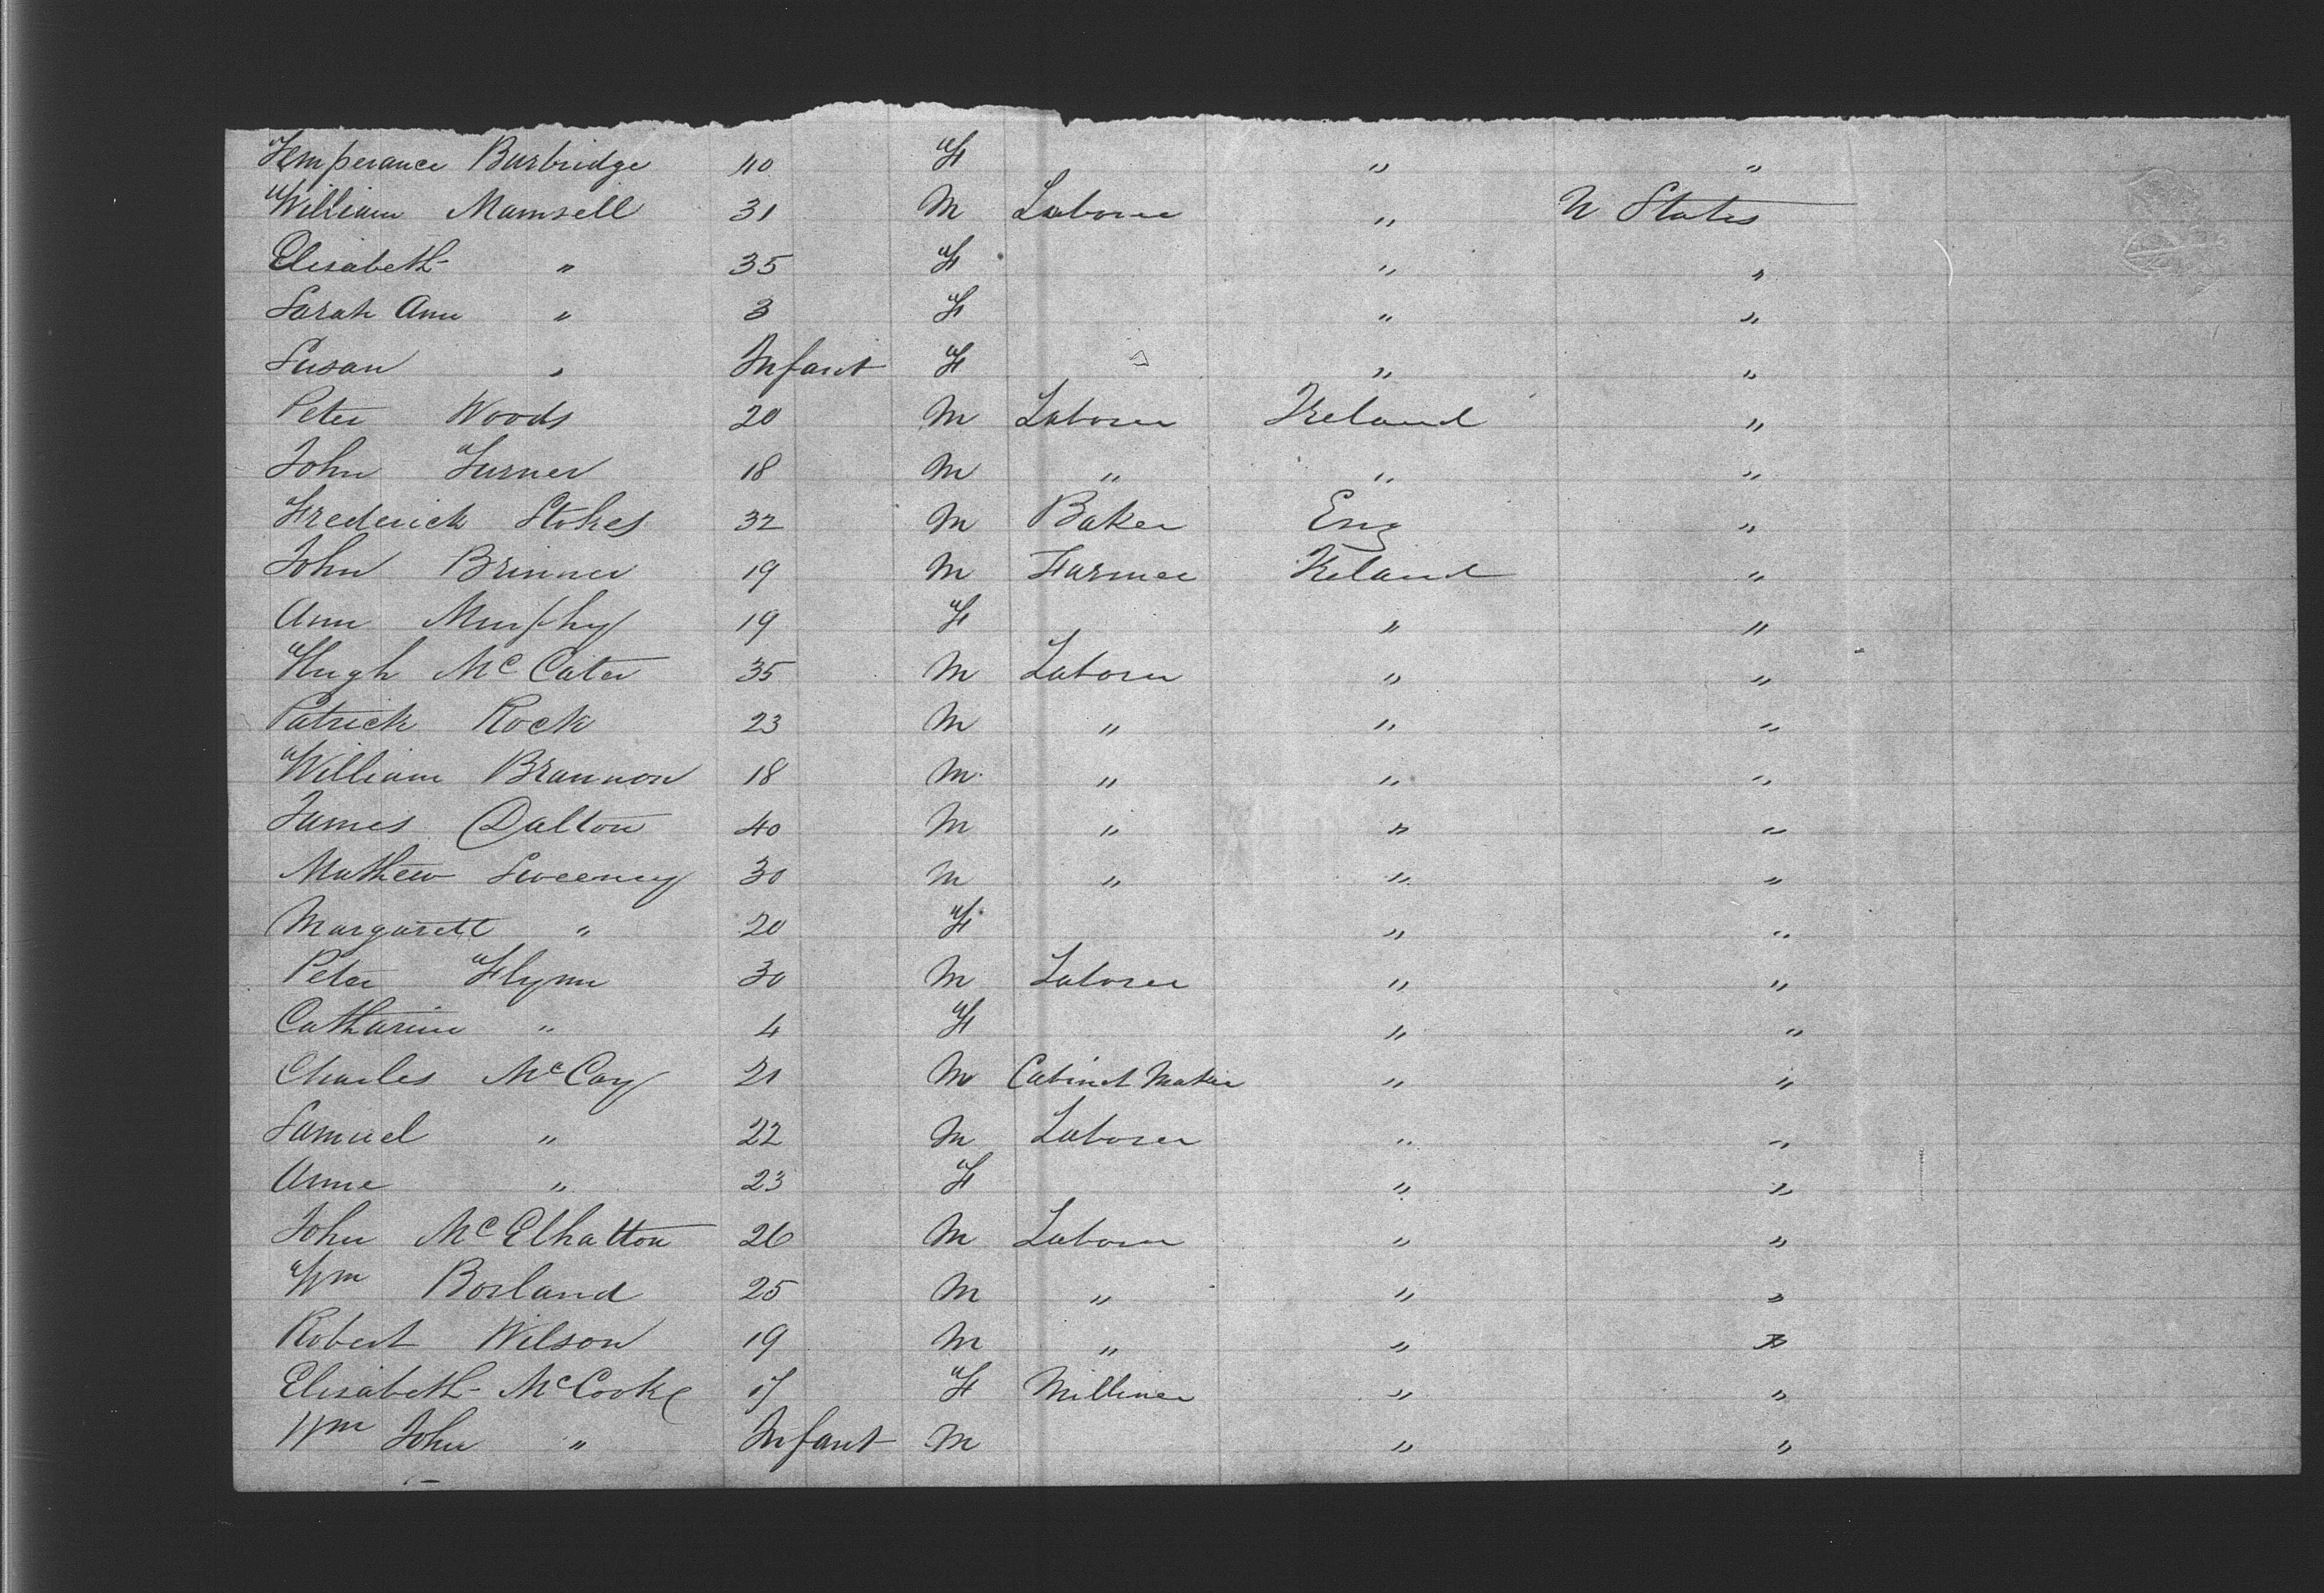 Temperance Burbridge 40 F " "
William Mamsell 31 M Laborer " U States
Elisabeth " 35 F " "
Sarah Ann " 3 F " "
Susan " Infant F " "
Peter Woods 20 M Laborer Ireland "
John Turner 18 M " " "
Frederick Stokes 32 M Baker Eng "
John Brinner 19 M Farmer Ireland "
Ann Murphy 19 F " "
Hugh McCater 35 M Laborer " "
Patrick Rock 23 M " " "
William Brannon 18 M " " "
James Dalton 40 M " " "
Mathew Sweeney 30 M " " "
Margarett " 20 F " "
Peter Flynn 30 M Laborer " "
Catharine " 4 F " "
Charles McCoy 21 M Cabinet Maker " "
Samuel " 22 M Laborer " "
Anne " 23 F " "
John McElhatton 26 M Laborer " "
Wm Borland 25 M " " "
Robert Wilson 19 M " " "
Elisabeth McCooke 17 F Milliner " "
Wm John " Infant M " "